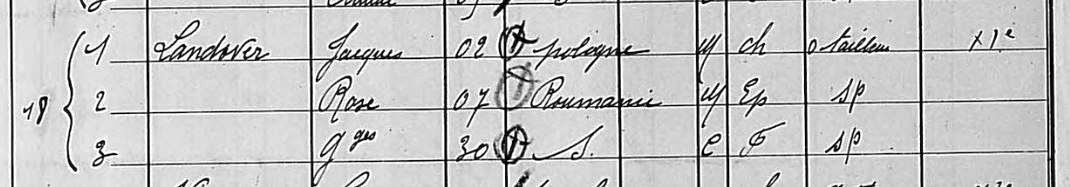 18 1 Landover Jacques 02 pologne M ch o tailleur x1e
2 Rose 07 Roumanie M Ep sp
3 Gges 30 S. c F sp